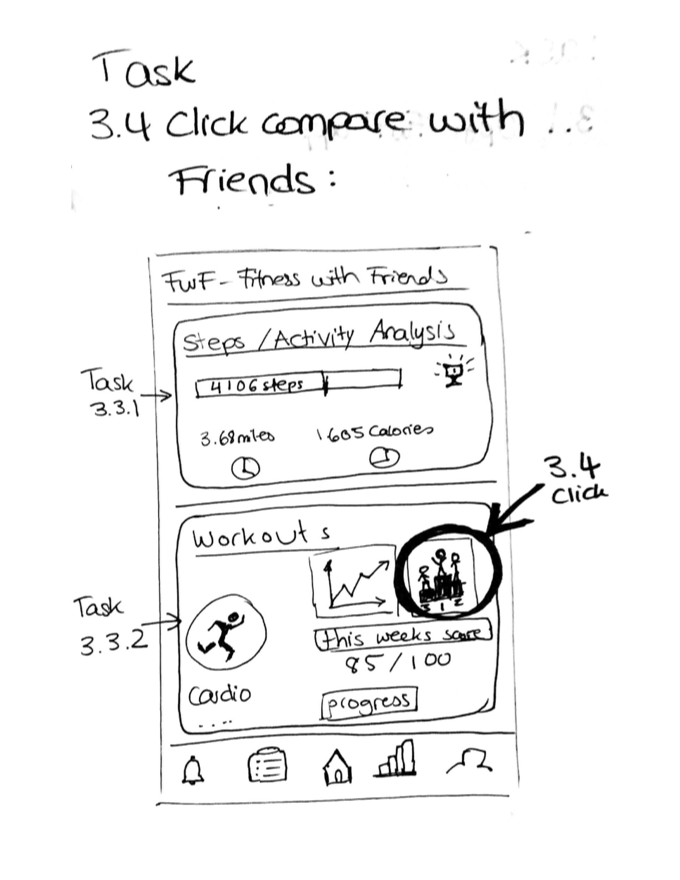 Task
3.4 Click compare with
Friends:
FWF - Fitness with Friends
Steps / Activity Analysis
Task
3.3.1
4106 steps
3.68 miles
1605 Calories
3.4
Click
Workouts
3 1 2
Task
3.3.2
this weeks score
85/100
Cardio
....
progress